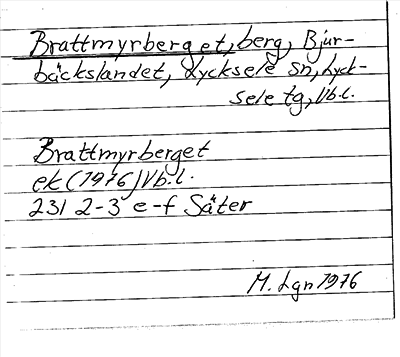 Brattmyrberget, berg, Bjur-
bäckslandet, Lycksele sn, Lyck-
sele tg, Vb.l.
Brattmyrberget
ek (1976) Vb.l.
231 2-3 e-f Säter
M. Lgn 1976